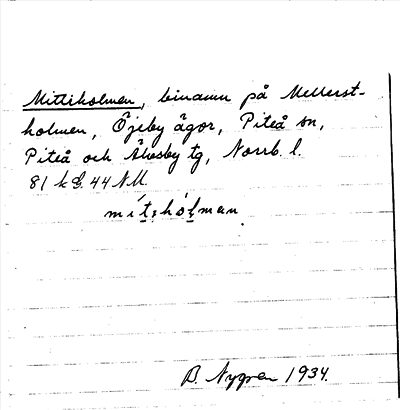 Mittiholmen, binamn på Mellerst-
holmen, Öjeby ägor, Piteå sn,
Piteå och Älvsby tg, Norrb. l.
81 k G. 44 N M.
B. Nygren 1934.